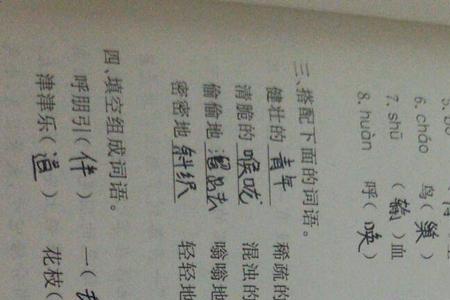 6. cháo 鸟(巢)
7. shū (输)血
8. huàn 呼(唤)
三、搭配下面的词语。
健壮的 青年 稀疏的
清脆的 喉咙 混浊的
偷偷地 溜出去 嗡嗡地
密密地 斜织 轻轻地
四、填空组成词语。
呼朋引(伴) 一(
津津乐(道) 花枝(